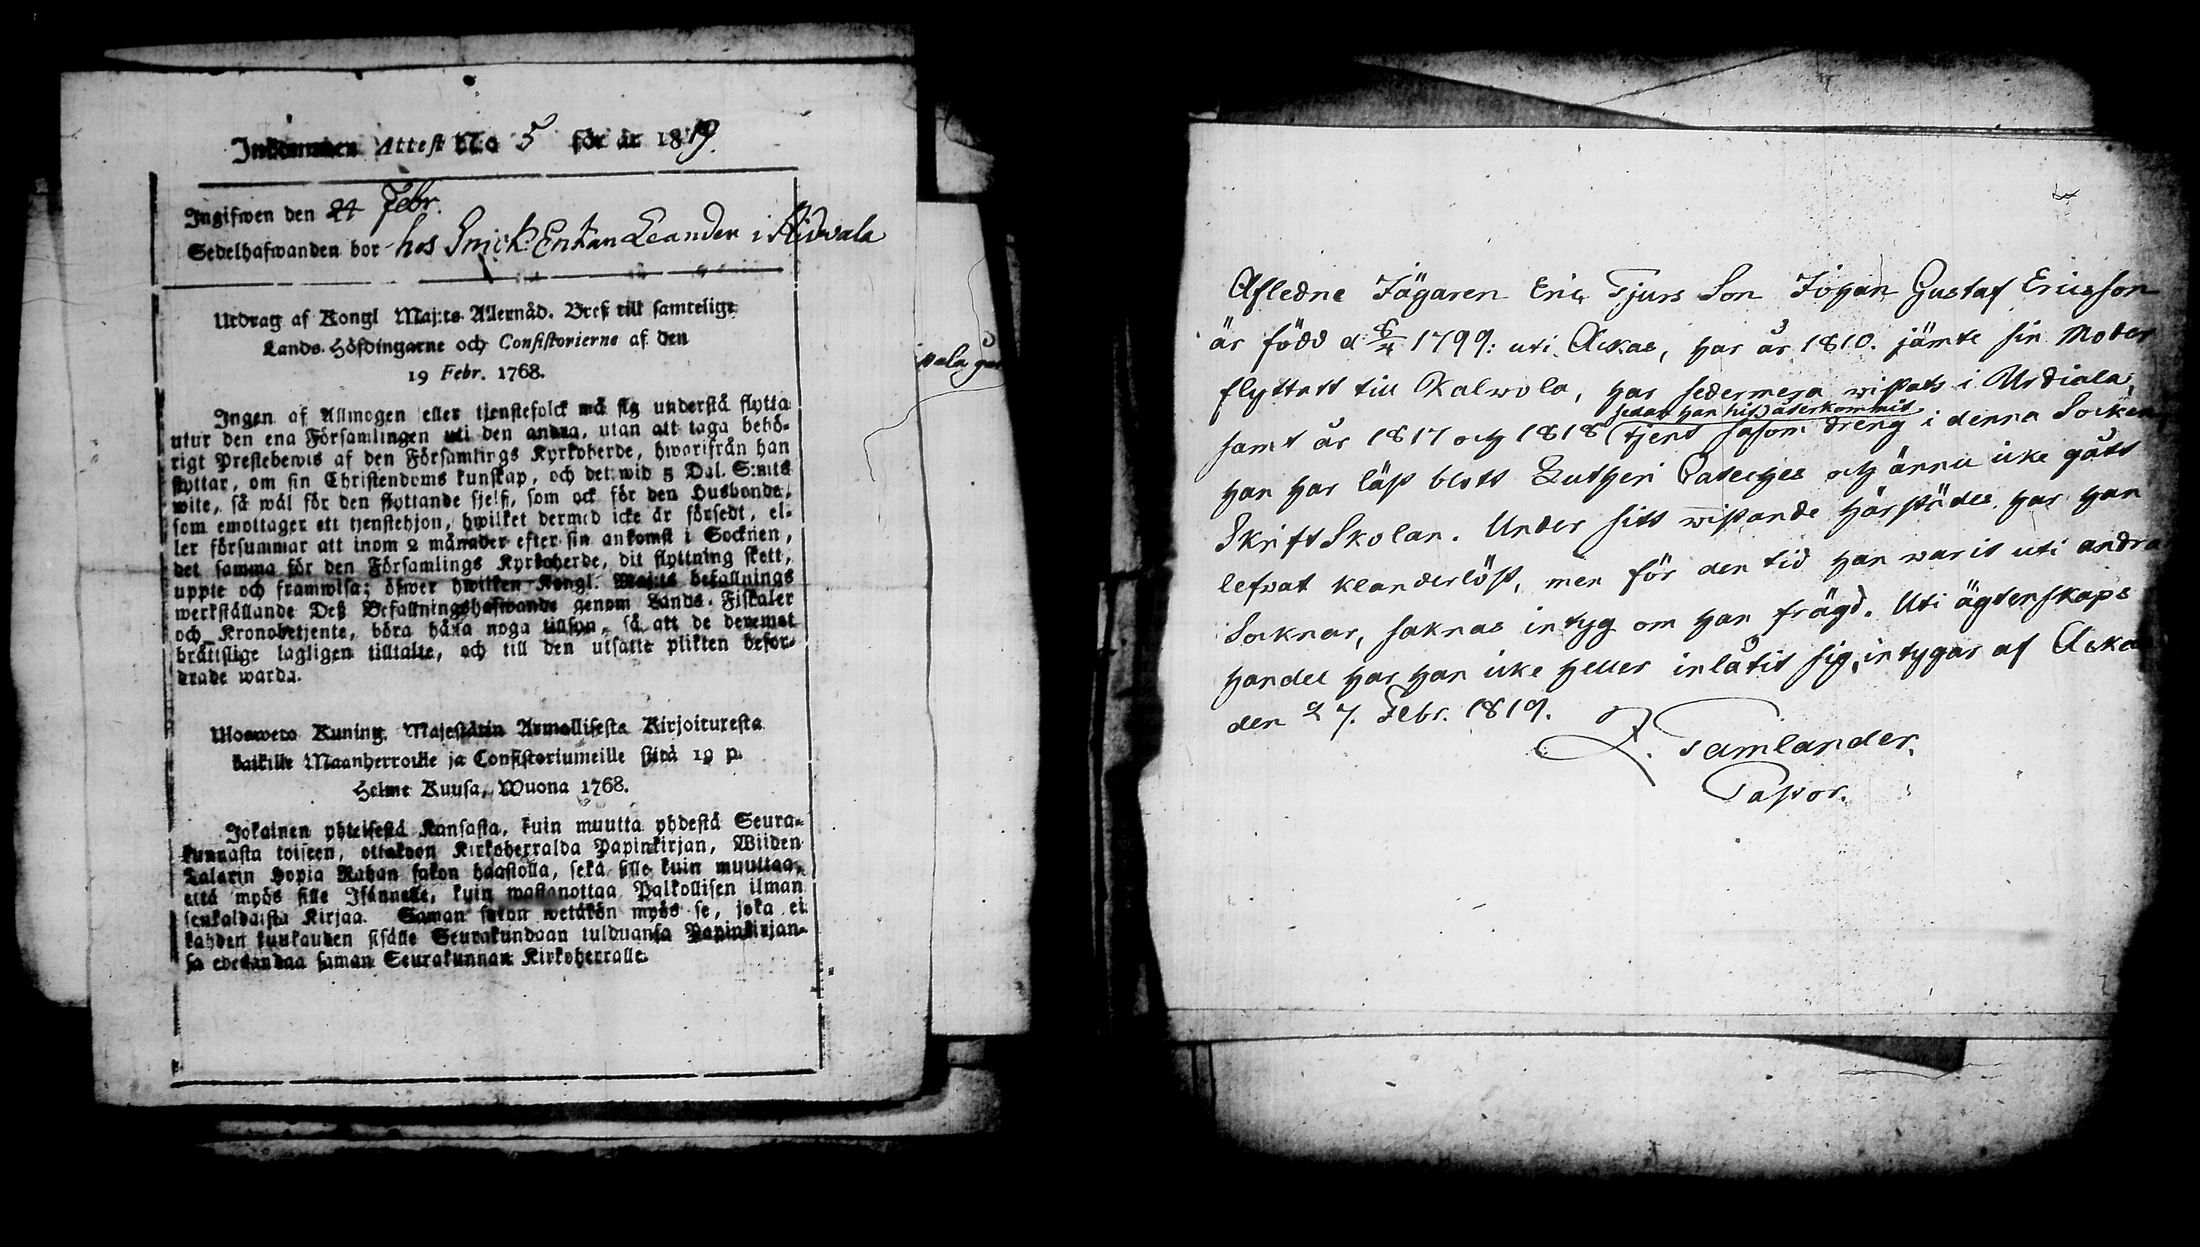 Inkommen Attest No 5 för år 1819.
Ingifwen den 24 Febr.
Sedelhafwanden bor hos Smick Enkan Leander i Ridvala
Utdrag af Kongl Maj:ts Allernåd. Bref till samtelige
Lands-Höfdingarne och Consistorierne af den
19 Febr. 1768.
Ingen af Allmogen eller tjenstefolck må sig understå flytta
utur den ena Församlingen uti den andra, utan att taga behö-
rigt Prestebewis af den Församlings Kyrkoherde, hwarifrån han
flyttar, om sin Christendoms kunskap, och det wid 5 Dal. S:mts
wite, så wäl för den flyttande sjelf, som ock för den Husbonde,
som emottager ett tjenstehjon, hwilket dermed icke är försedt, el-
ler försummar att inom 2 månader efter sin ankomst i Socknen,
det samma för den Församlings Kyrkoherde, dit flyttning skett,
uppte och framwisa; öfwer hwilken Kongl. Maj:ts befallnings
werkställande Deß Befallningshafwande genom Lands-Fiskaler
och Kronobetjente, böra hålla noga tillsyn, så att de deremot
brättslige lagligen tilltalte, och till den utsatte plikten befor-
drade warda.
Uloswero Kuning. Majestätin Armollisesta Kirjoituresta
kaikille Maanherroille ja Consistoriumeille siitä 19 p.
Helme Kuusa, Wuona 1768.
Jokainen yhteisestä Kansasta, kuin muutta yhdestä Seura-
kunnasta toiseen, ottakoon Kirkoherralda Papinkirjan, Wiiden
Talarin Hopia Rahan sakon haastolla, sekä sille kuin muuttaa,
että myös sille Isännelle, kuin wastanottaa Palkollisen ilman
senkaldaista Kirjaa. Saman sakon wetäkön myös se, joka ei
kahden kuukauden sisälle Seurakundaan tulduansa Papinkirjan-
sa edesandaa saman Seurakunnan Kirkoherralle.
Afledne Jägaren Eric Tjurs Son Johan Gustaf Ericsson
är född d 8/4 1799: uti Ackas, har år 1810. jämte sin Moder
flyttatt till Kalwola, har sedermera wistats i Urdiala,
sedan han hit återkommit
samt år 1817 och 1818 tjent såsom dreng i denna Socken,
han har läst blott Lutheri Cateches och ännu icke gått
Skrift Skolan. Under sitt wistande härstädes har han
lefvat klanderlöst, men för den tid han warit uti andra
Socknar, saknas intyg om han frägd. Uti ägtenskaps
handel har han icke heller inlåtit sig, intygar af Ackas
den 27. Febr. 1819.
Z. Tamlander.
Pastor.